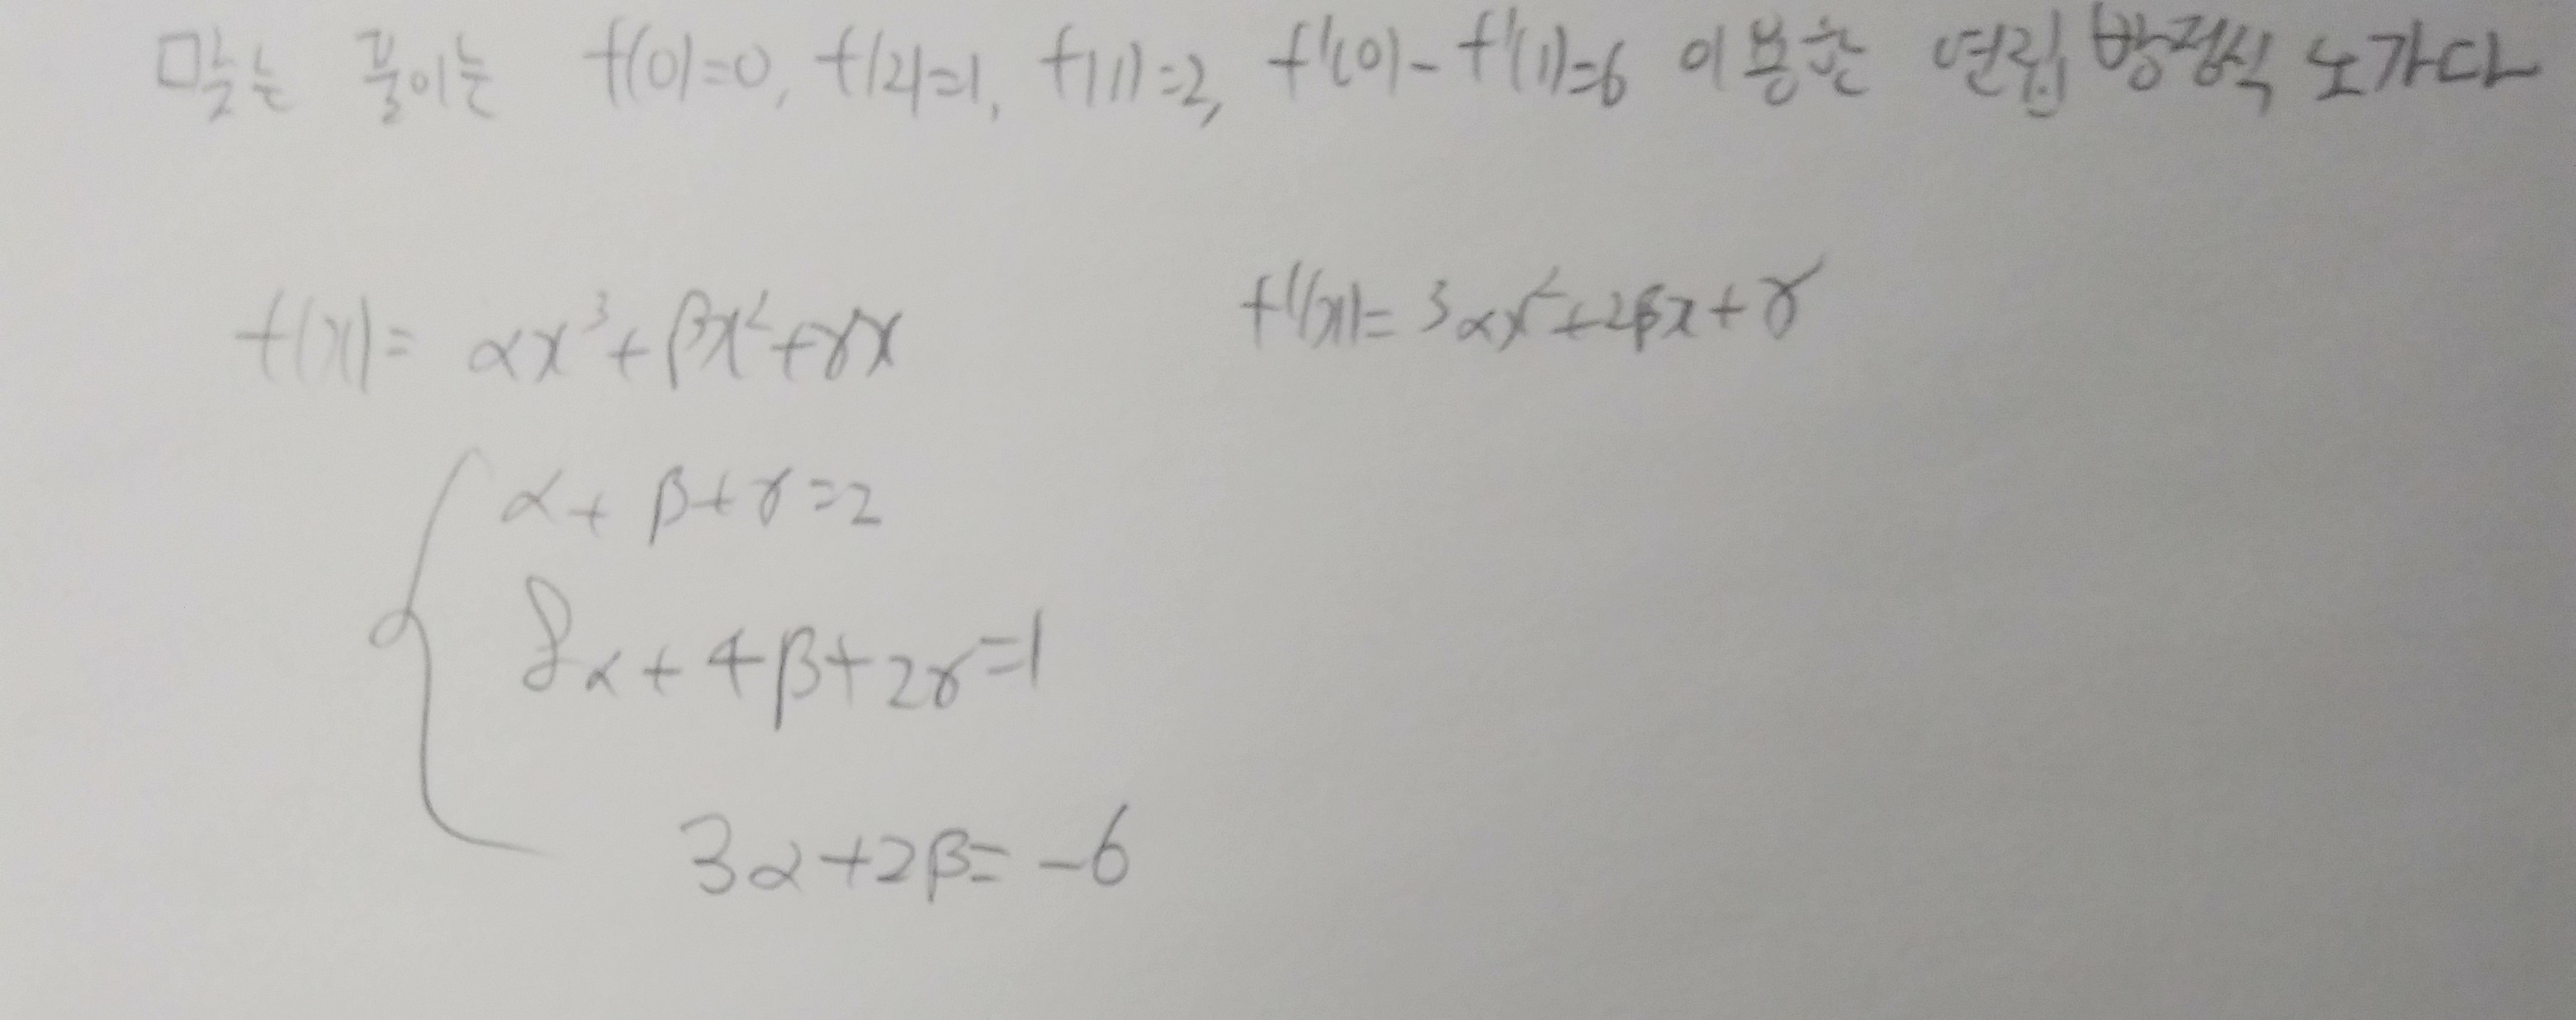 맞는 풀이는 f(0)=0, f(2)=1, f(1)=2, f'(0)-f'(1)=6 이용한 연립 방정식 노가다
f(x)= αx³+βx²+γx f'(x)= 3αx²+2βx+γ
α+β+γ=2
8α+4β+2γ=1
3α+2β=-6